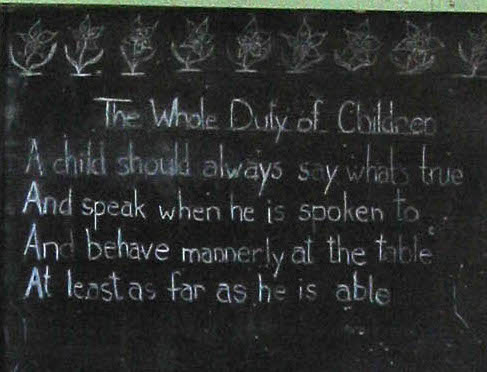 The Whole Duty of Children
A child should always say whats true
And speak when he is spoken to
And behave mannerly at the table
At least as far as he is able